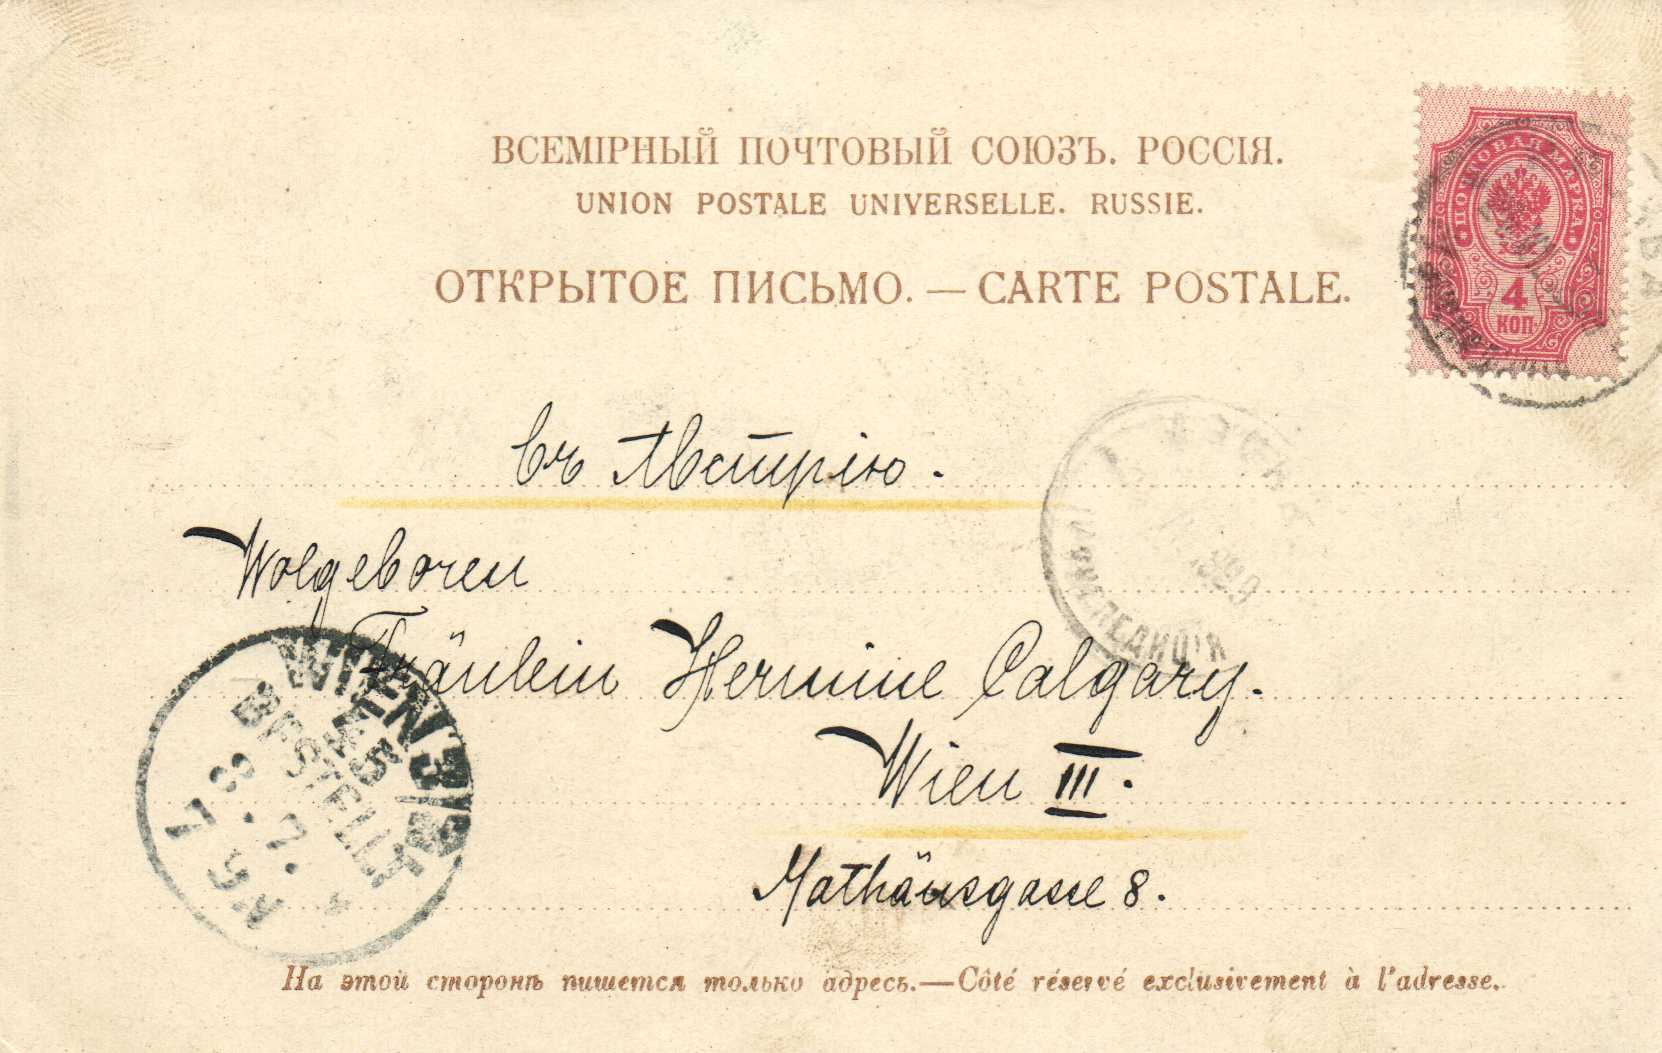 ВСЕМІРНЫЙ ПОЧТОВЫЙ СОЮЗЪ. РОССІЯ.
UNION POSTALE UNIVERSELLE. RUSSIE.
ОТКРЫТОЕ ПИСЬМО. — CARTE POSTALE.
ПОЧТОВАЯ МАРКА
4
КОП
Въ Австрію.
Wolgeboren
Fräulein Hermine Calgary.
Wien III.
Mathäusgasse 8.
WIEN 3/3
BESTELLT
8.7.
На этой сторонѣ пишется только адресъ.—Côté réservé exclusivement à l'adresse.